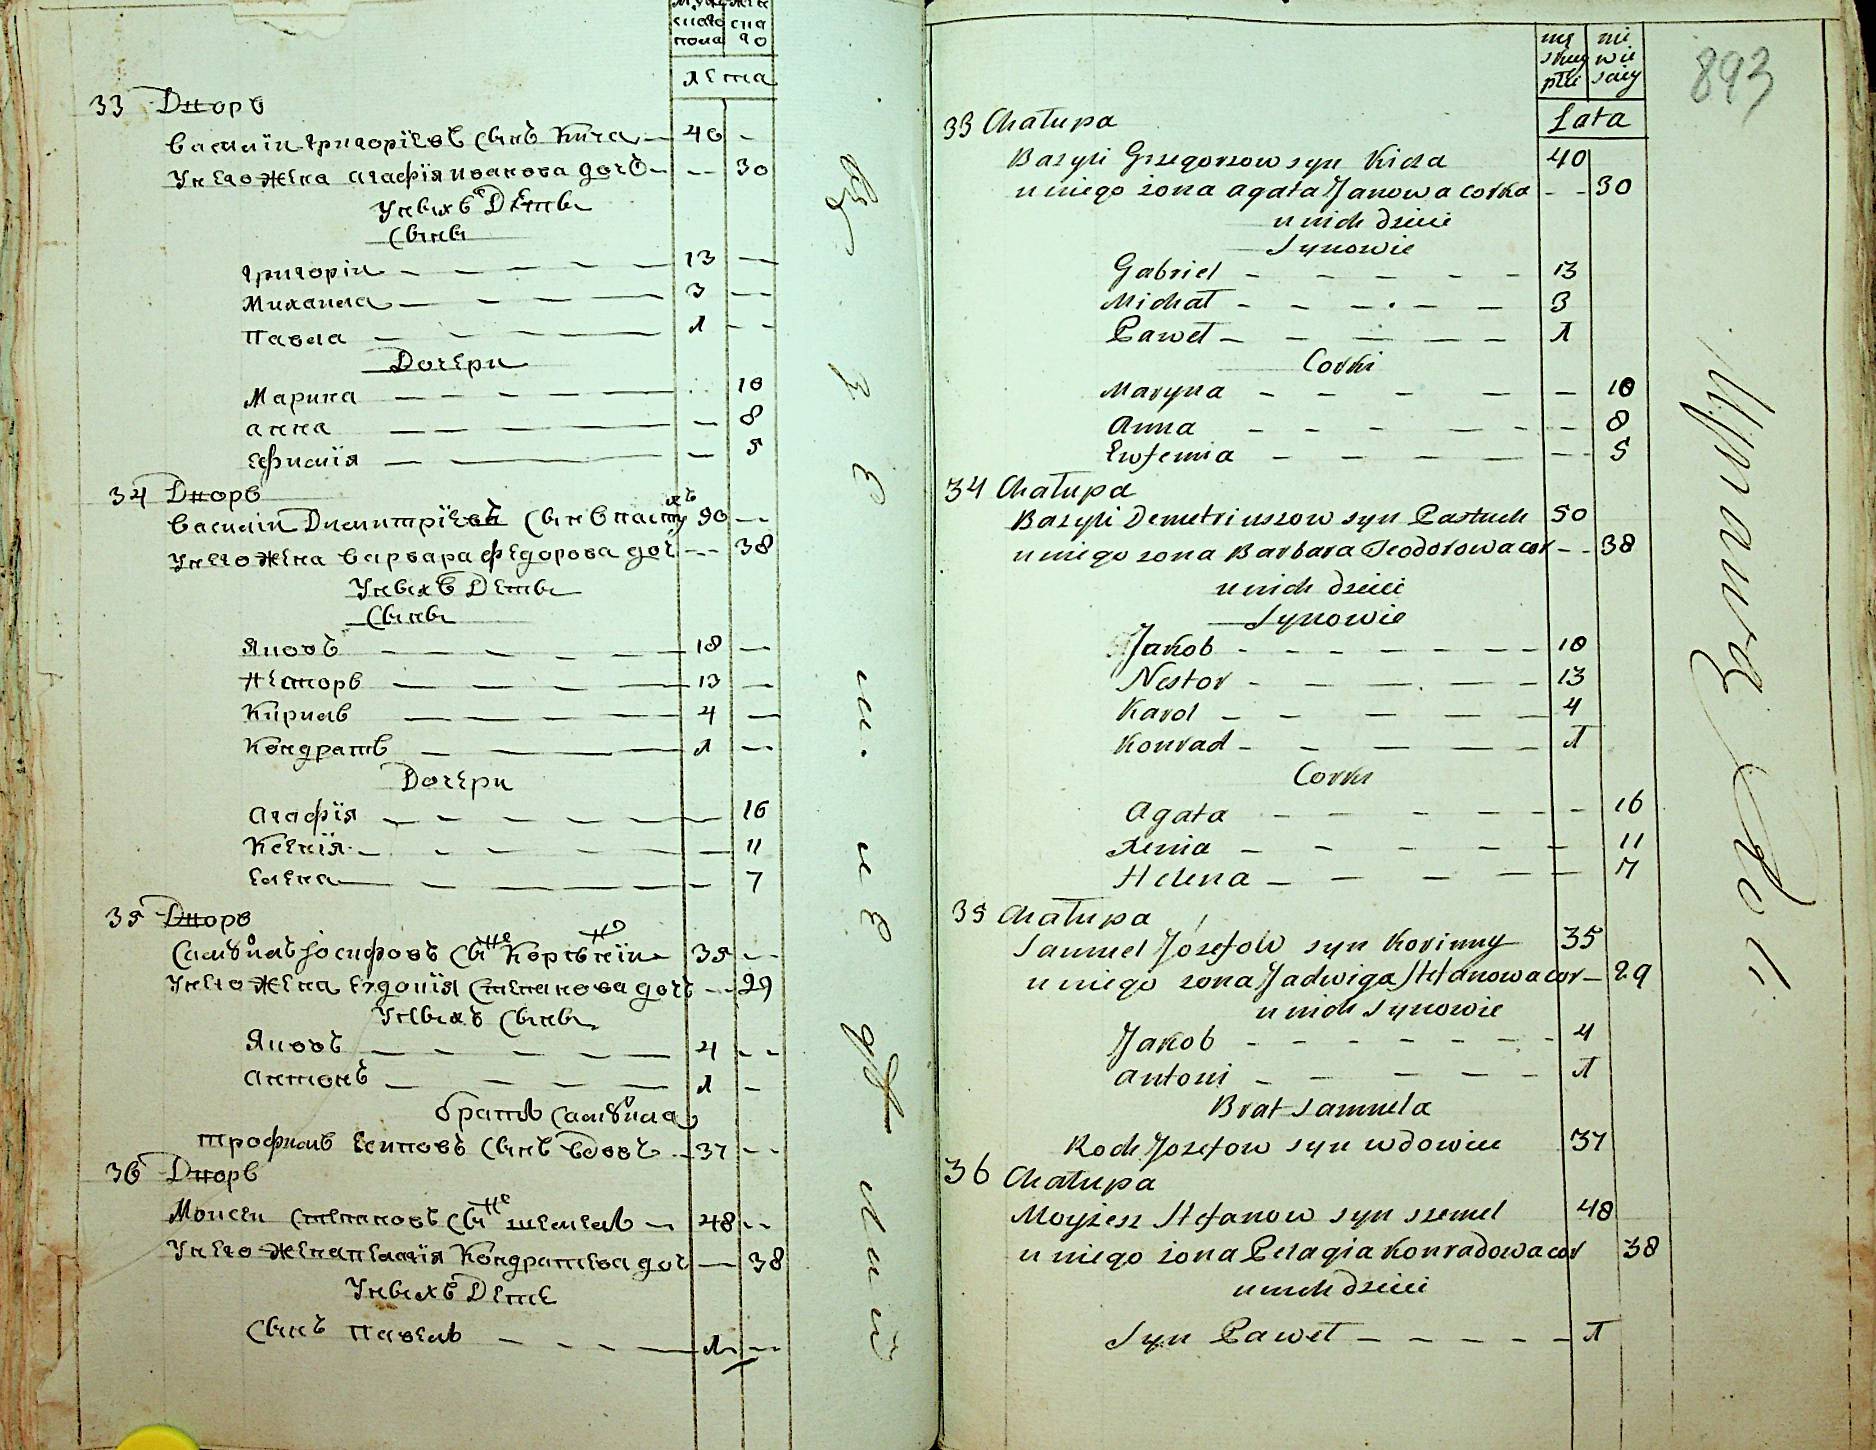 лета
33 Дворъ
василіи григоріевъ сынъ Кича 40
У него жена агафія иванова дочъ 30
У ныхъ Дѣты
Сыны
григоріи 13
Михаила 3
Павла 1
Дочери
Марина 10
анна 8
ефимія 5
34 Дворъ
василіи Димитріевъ сынъ пастухъ 50
У него жена варвара федорова доч 38
У ныхъ Деты
Сыны
Яковъ 18
Несторъ 13
Кирилъ 4
Кондратъ 1
Дочери
агафія 16
Ксенія 11
елена 7
35 Дворъ
Самуилъ Іосифовъ сынъ 35
У него жена евдокія степанова дочъ 29
У ныхъ Сыны
Яковъ 4
антонъ 1
братъ Самуила
трофимъ есиповъ сынъ вдовъ 37
36 Дворъ
Моисеи степановъ сынъ шемелъ 48
У него жена пелагія Кондратева доч 38
У ныхъ Дете
Сынъ павелъ 1
893
męskiey płci
niewisciey
Lata
33 Chałupa
Bazyli Grzegorzow syn Kicza 40
u niego żona agata Janowa corka 30
u nich dzieci
Synowie
Gabriel 13
Michał 3
Paweł 1
Corki
Maryna 10
Anna 8
Eufemia 5
34 Chałupa
Bazyli Demetriuszow syn Pastuch 50
u niego zona Barbara Teodorowa cor 38
u nich dzieci
Synowie
Jakob 18
Nestor 13
Karol 4
Konrad 1
Corki
Agata 16
Xenia 11
Helena 7
35 Chałupa
Samuel Józefow syn Korinny 35
u niego zona Jadwiga Stefanowa cor 29
u nich synowie
Jakob 4
antoni 1
Brat Samuela
Roch Jozefow syn wdowiec 37
36 Chałupa
Moyżesz Stefanow syn szemel 48
u niego żona Pelagia Konradowa cor 38
u nich dzieci
Syn Paweł 1